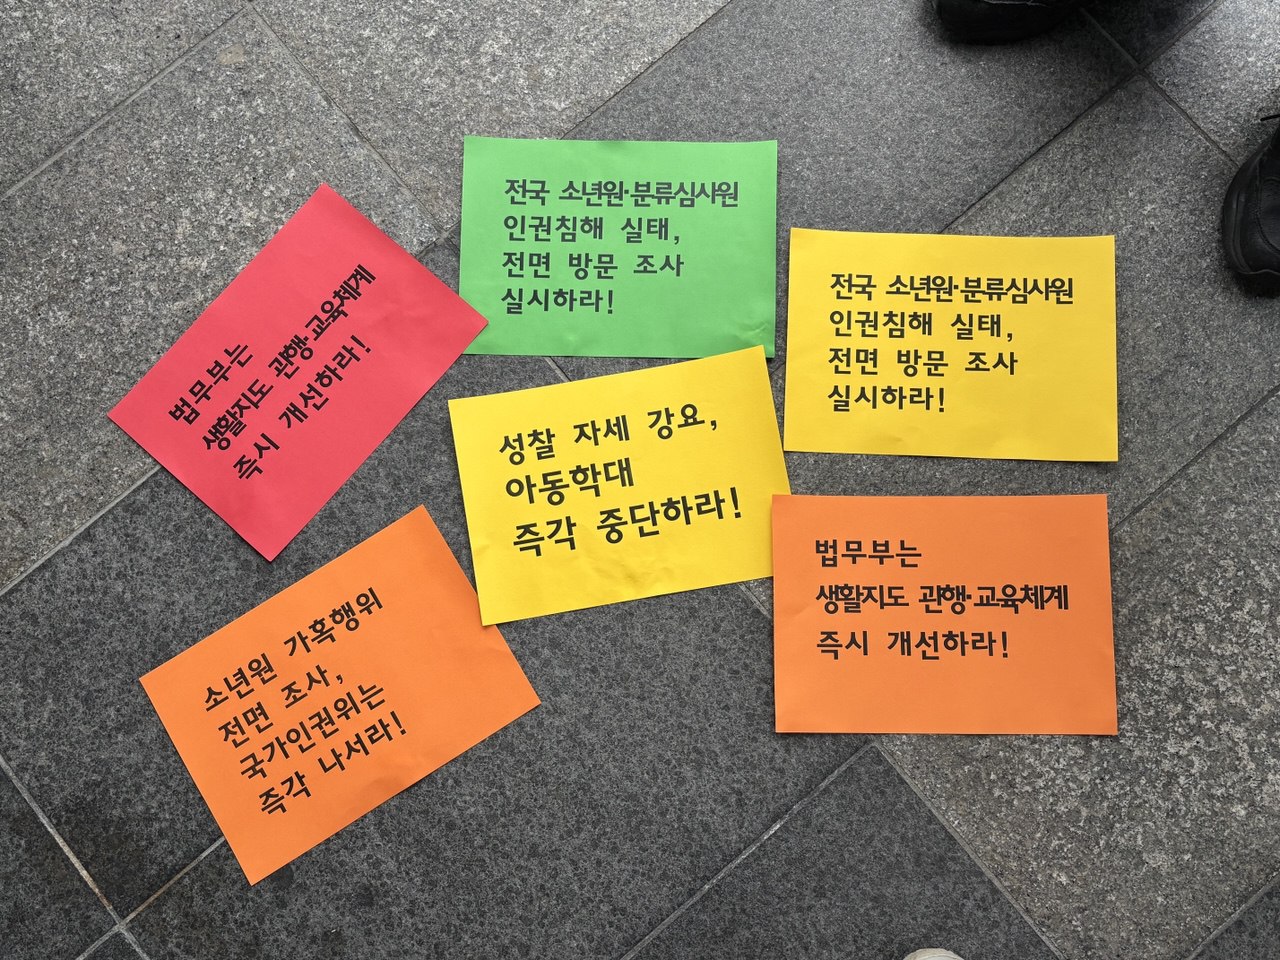 전국 소년원·분류심사원
인권침해 실태,
전면 방문 조사
실시하라!
법무부는
생활지도 관행·교육체계
즉시 개선하라!
전국 소년원·분류심사원
인권침해 실태,
전면 방문 조사
실시하라!
성찰 자세 강요,
아동학대
즉각 중단하라!
소년원 가혹행위
전면 조사,
국가인권위는
즉각 나서라!
법무부는
생활지도 관행·교육체계
즉시 개선하라!